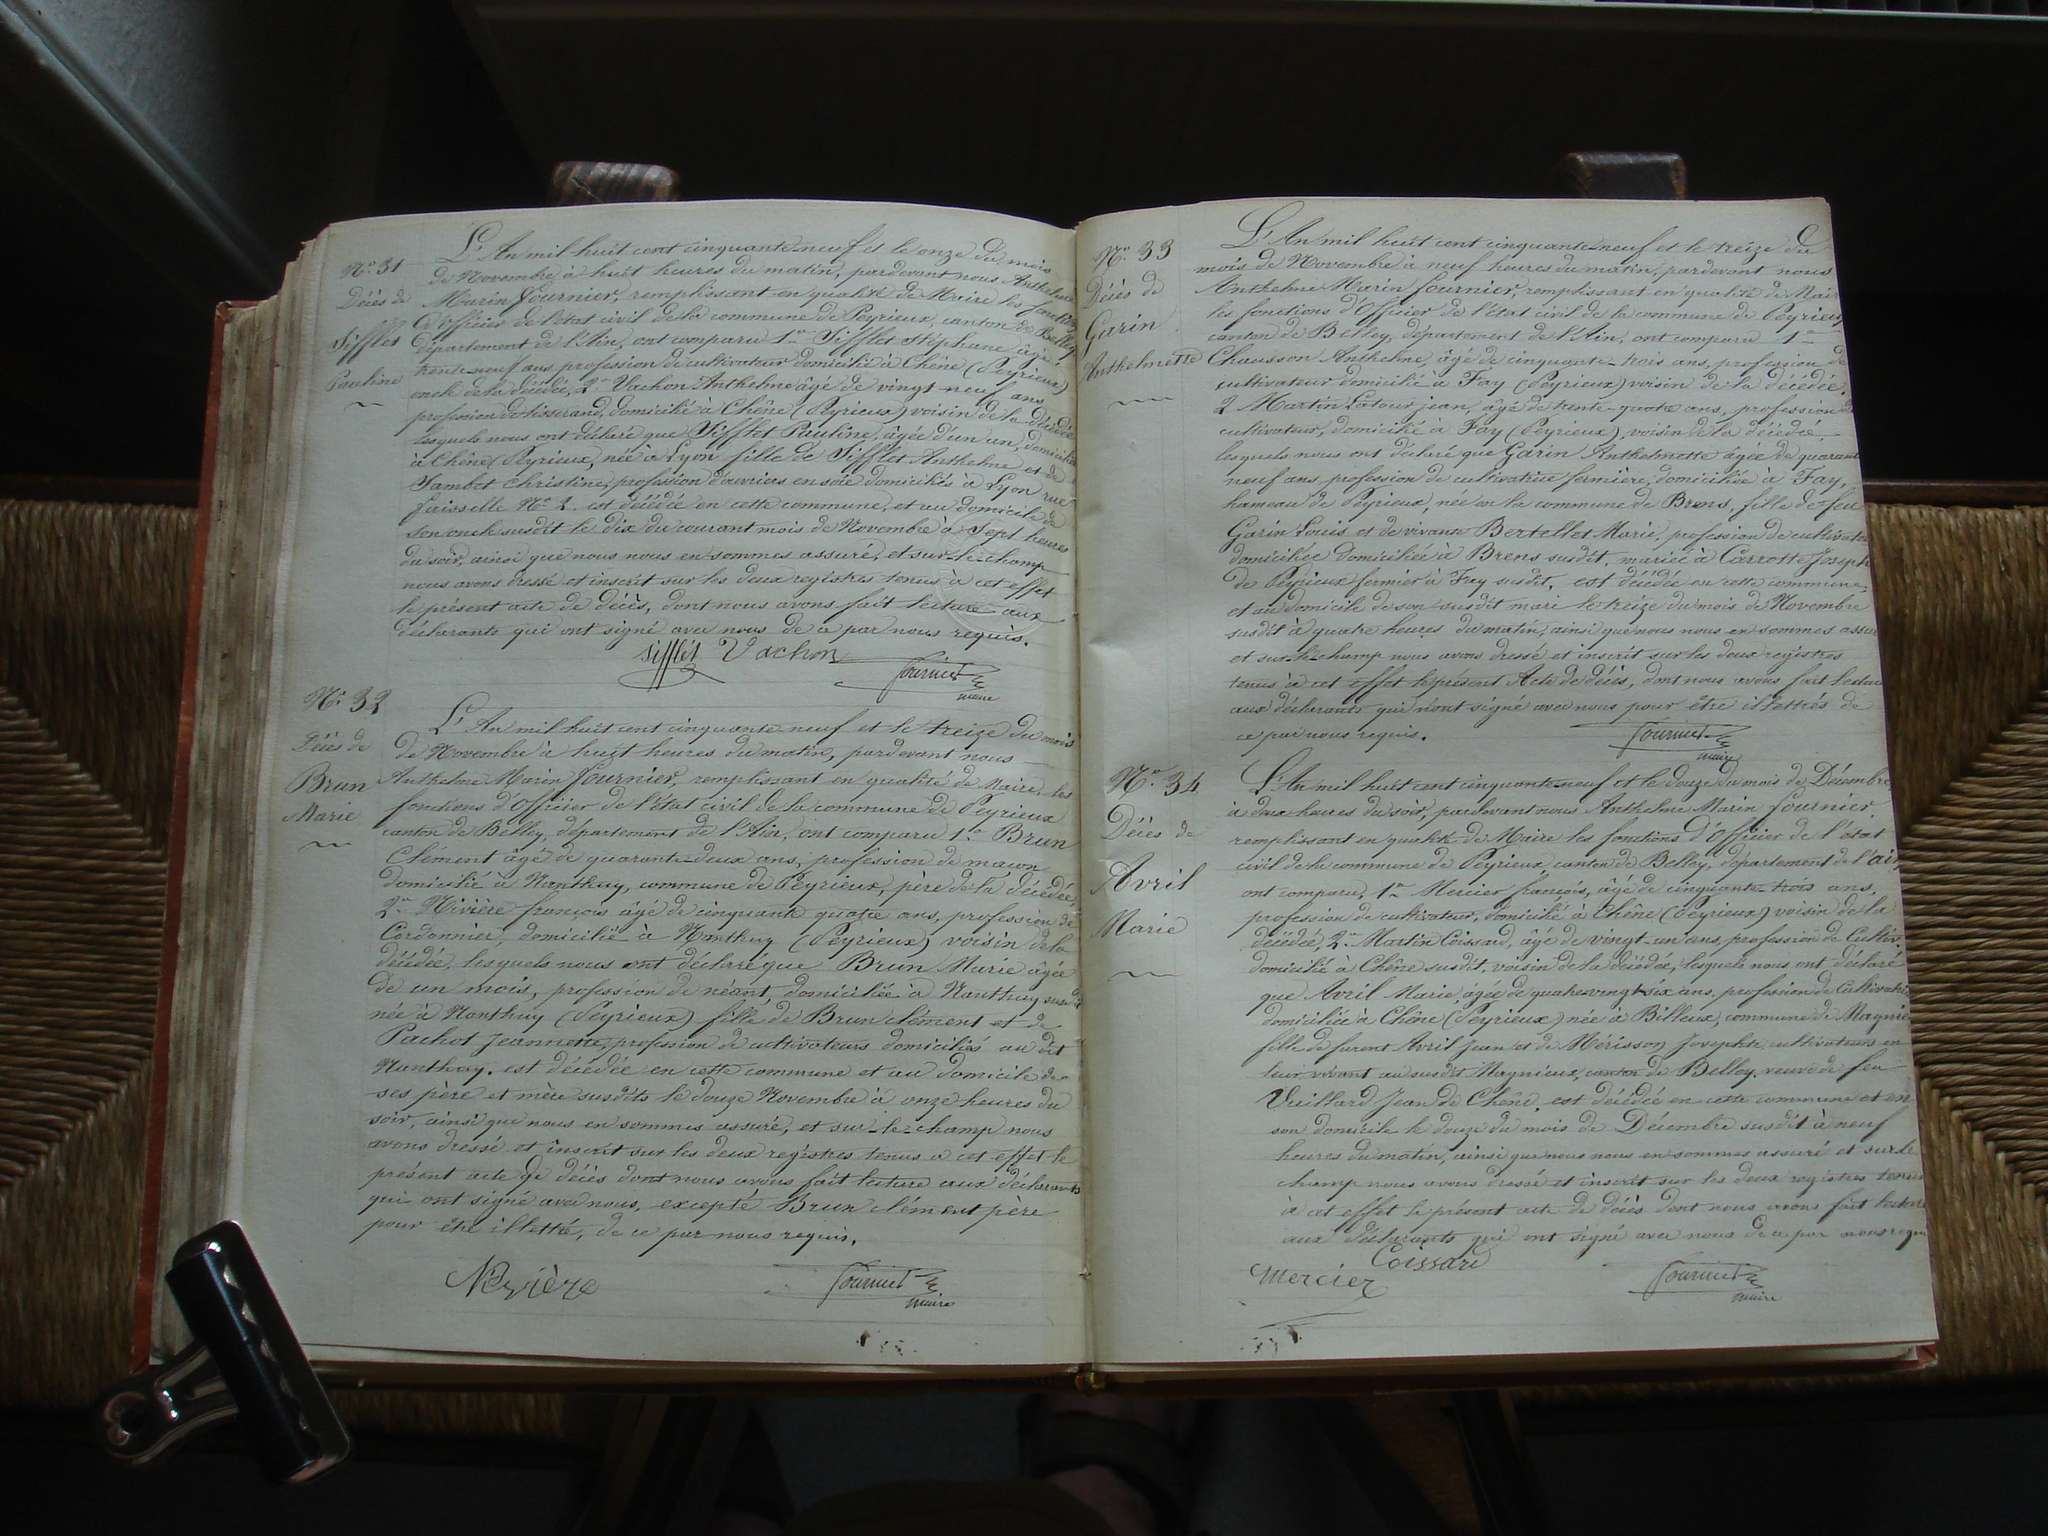 N° 31
Décès de
Sifflet
Pauline
L'An mil huit cent cinquante-neuf et le onze du mois
de Novembre à huit heures du matin, pardevant nous Anthelme
Marin Fournier, remplissant en qualité de Maire les fonctions
d'officier de l'état civil de la commune de Peyrieux, canton de Belley
département de l'Ain, ont comparu 1° Sifflet Stéphane âgé
trente-neuf ans profession de cultivateur domicilié à Chêne (Peyrieux)
oncle de la décédée, 2° Vachon Anthelme âgé de vingt-neuf ans
profession de tisserand, domicilié à Chêne (Peyrieux) voisin de la décédée
lesquels nous ont déclaré que Sifflet Pauline, âgée d'un an, domiciliée
à Chêne (Peyrieux, née à Lyon fille de Sifflet Anthelme et de
Jambet Christine, profession d'ouvriers en soie domiciliés à Lyon rue
N° 2. est décédée en cette commune, et au domicile de
son oncle susdit le dix du courant mois de Novembre à Sept heures
du soir, ainsi que nous nous en sommes assuré, et sur-le-champ
nous avons dressé et inscrit sur les deux registres tenus à cet effet
le présent acte de décès, dont nous avons fait lecture aux
déclarants qui ont signé avec nous de ce par nous requis.
Sifflet Vachon Fournier
maire
N° 32
Décès de
Brun
Marie
L'An mil huit cent cinquante neuf et le treize du mois
de Novembre à huit heures du matin, pardevant nous
Anthelme Marin Fournier, remplissant en qualité de Maire les
fonctions d'Officier de l'état civil de la commune de Peyrieux
canton de Belley, département de l'Ain, ont comparu 1° Brun
Clément âgé de quarante-deux ans, profession de maçon
domicilié à Nanthuy, commune de Peyrieux, père de la décédée,
2° Rivière françois âgé de cinquante quatre ans, profession de
Cordonnier, domicilié à Nanthuy (Peyrieux) voisin de la
décédée, lesquels nous ont déclaré que Brun Marie âgée
de un mois, profession de néant, domiciliée à Nanthuy susdit
née à Nanthuy (Peyrieux) fille de Brun clément et de
Pachot Jeannette, profession de cultivateurs domiciliés au dit
Nanthuy. est décédée en cette commune et au domicile de
ses père et mère susdits le douze Novembre à onze heures du
soir, ainsi que nous en sommes assuré, et sur-le-champ nous
avons dressé et inscrit sur les deux registres tenus à cet effet le
présent acte de décès dont nous avons fait lecture aux déclarants
qui ont signé avec nous, excepté Brun clément père
pour être illettré, de ce par nous requis.
Rivière Fournier
maire
N° 33
Décès de
Garin
Anthelmette
L'An mil huit cent cinquante-neuf et le treize du
mois de Novembre à neuf heures du matin, pardevant nous
Anthelme Marin Fournier, remplissant en qualité de Maire
les fonctions d'Officier de l'état civil de la commune de Peyrieux
canton de Belley, département de l'Ain, ont comparu 1°
Chausson Anthelme, âgé de cinquante-trois ans, profession de
cultivateur domicilié à Fay (Peyrieux) voisin de la décédée,
2 Martin Latour jean, âgé de trente-quatre ans, profession de
cultivateur, domicilié à Fay (Peyrieux), voisin de la décédée
lesquels nous ont déclaré que Garin Anthelmette âgée de quarante
neuf ans, profession de cultivatrice fermière, domiciliée à Fay,
hameau de Peyrieux, née en la commune de Brens, fille de feu
Garin Louis et de vivante Bertellet Marie, profession de cultivatrice
domiciliée domiciliée à Brens susdit, mariée à Carrotte Joseph
de Peyrieux fermier à Fay susdit, est décédée en cette commune,
et au domicile de son susdit mari le treize du mois de Novembre
susdit à quatre heures du matin, ainsi que nous nous en sommes assuré
et sur-le-champ nous avons dressé et inscrit sur les deux registres
tenus à cet effet le présent Acte de décès, dont nous avons fait lecture
aux déclarants qui n'ont signé avec nous pour être illettrés de
ce par nous requis.
Fournier
maire
N° 34
Décès de
Avril
Marie
L'An mil huit cent cinquante-neuf et le douze du mois de Décembre
à deux heures du soir, pardevant nous Anthelme Marin Fournier
remplissant en qualité de Maire les fonctions d'Officier de l'état
civil de la commune de Peyrieux canton de Belley, département de l'ain
ont comparu, 1° Mercier françois, âgé de cinquante-trois ans,
profession de cultivateur, domicilié à Chêne (Peyrieux) voisin de la
décédée, 2° Martin Coissard, âgé de vingt-un ans, profession de Cultiv.
domicilié à Chêne susdit, voisin de la décédée, lesquels nous ont déclaré
que Avril Marie, âgée de quatre-vingt-six ans, profession de Cultivatrice
domiciliée à Chêne (Peyrieux) née à Billieux, commune de Magnieu
fille de furent Avril Jean et de Mérisson Josephte cultivateurs en
leur vivant au susdit Magnieux, canton de Belley, veuve de feu
Vieillard Jean de Chêne, est décédée en cette commune et en
son domicile le douze du mois de Décembre susdit à neuf
heures du matin, ainsi que nous nous en sommes assuré et sur le
champ nous avons dressé et inscrit sur les deux registres tenus
à cet effet le présent acte de décès dont nous avons fait lecture
aux déclarants qui ont signé avec nous de ce par nous requis
Coissard
Mercier Fournier
maire